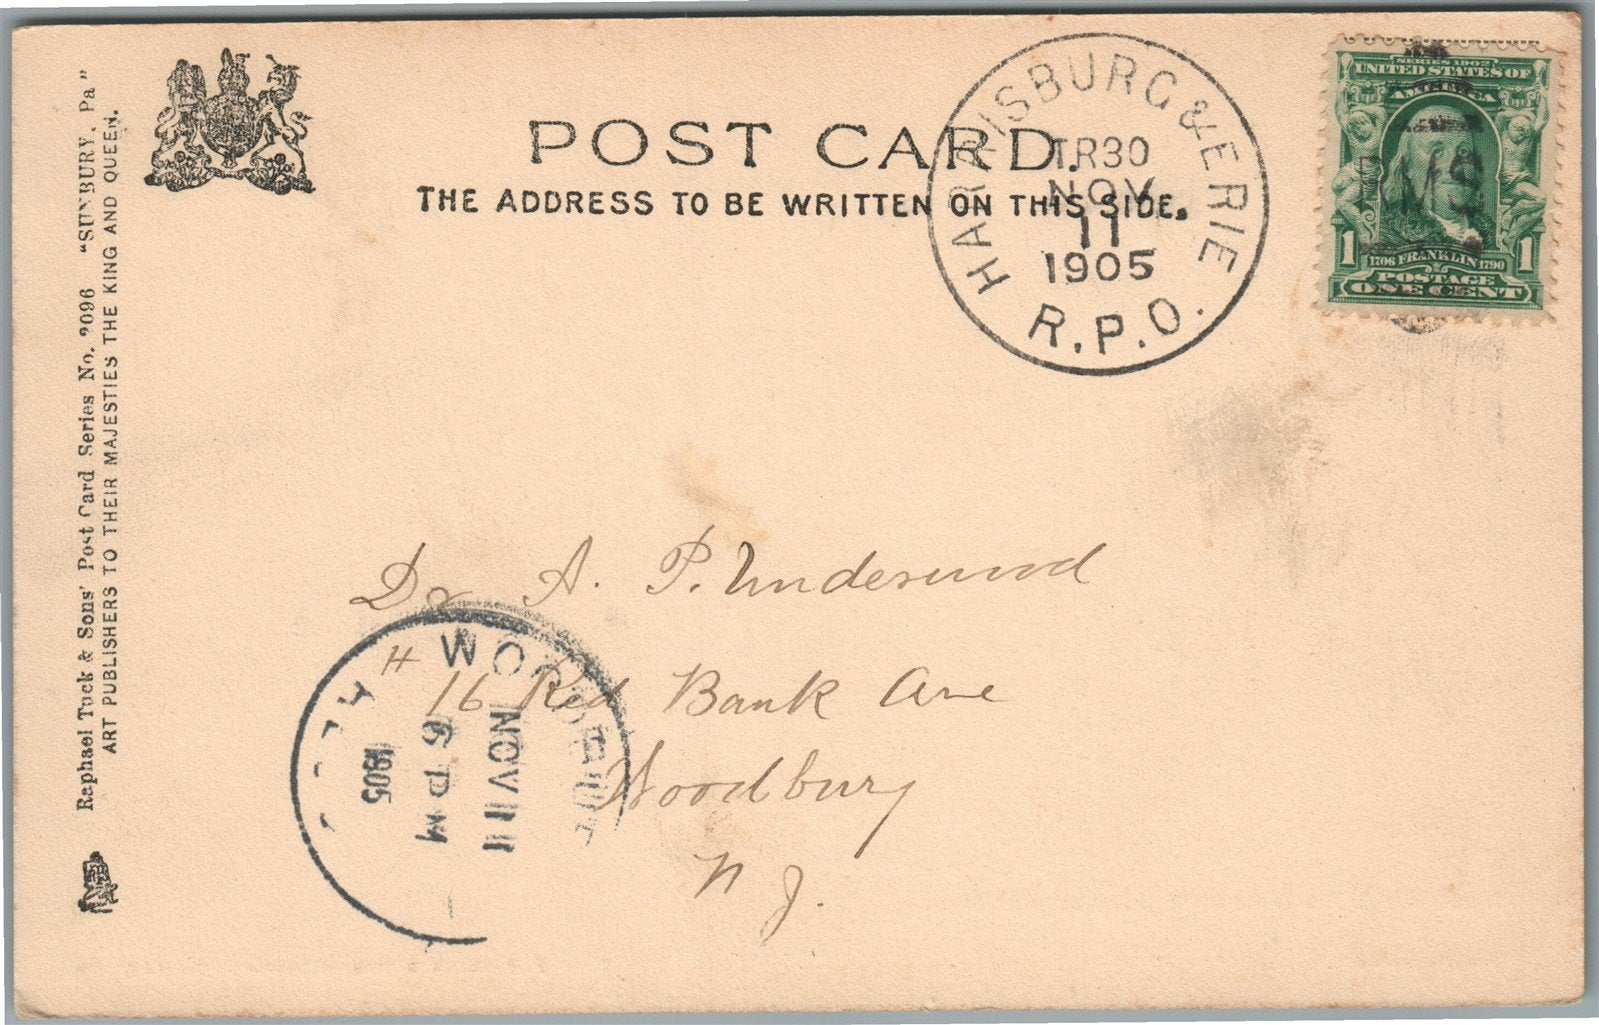 POST CARD.
THE ADDRESS TO BE WRITTEN ON THIS SIDE.
Raphael Tuck & Sons' Post Card Series No. 2096 "SUNBURY, Pa"
ART PUBLISHERS TO THEIR MAJESTIES THE KING AND QUEEN.
HARRISBURG & ERIE
TR30
NOV
11
1905
R.P.O.
SERIES 1902
UNITED STATES OF
AMERICA
RMS
1 1706 FRANKLIN 1790 1
POSTAGE
ONE CENT
Dr A. P. Underwood
# 16 Red Bank Ave
Woodbury
N J.
NOV 11
6 PM
1905